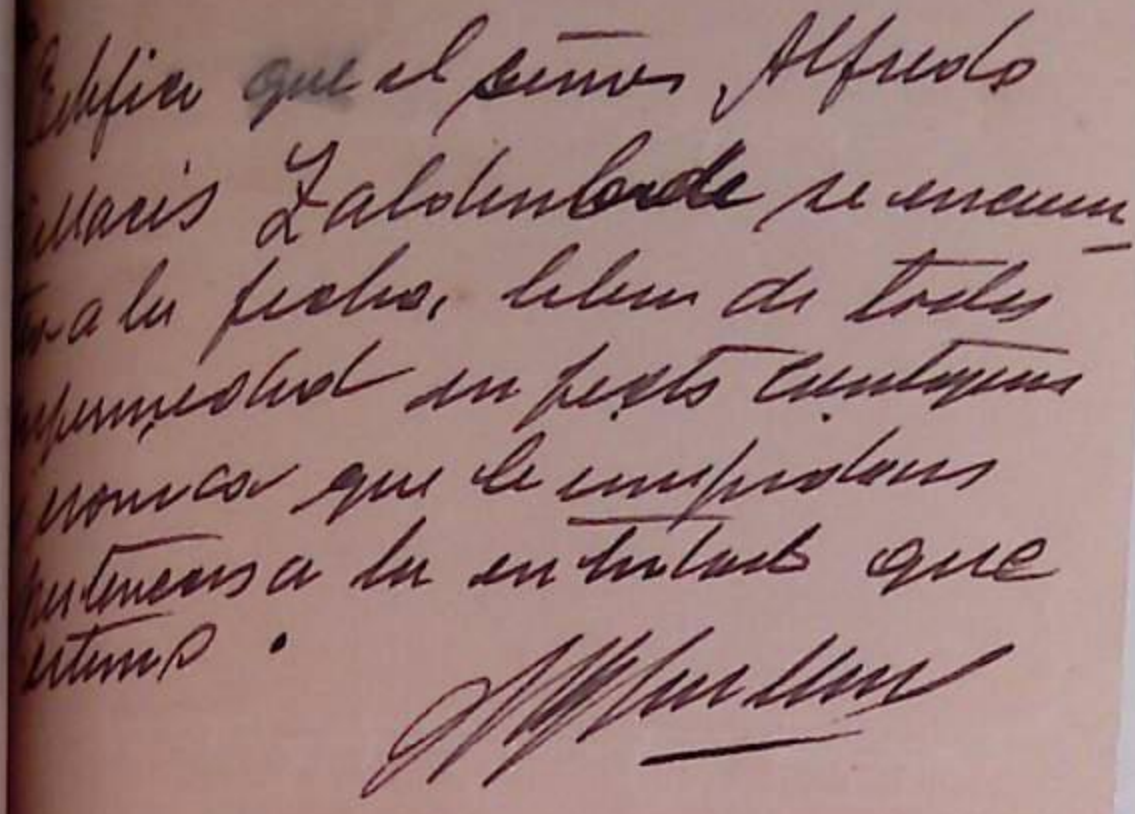 Certifico que el señor Alfredo
Zaldumbide se encuen
tra a la fecha, libre de toda
enfermedad infecto contagiosa
cronica que le impidan
pertenecer a la entidad que
estime.